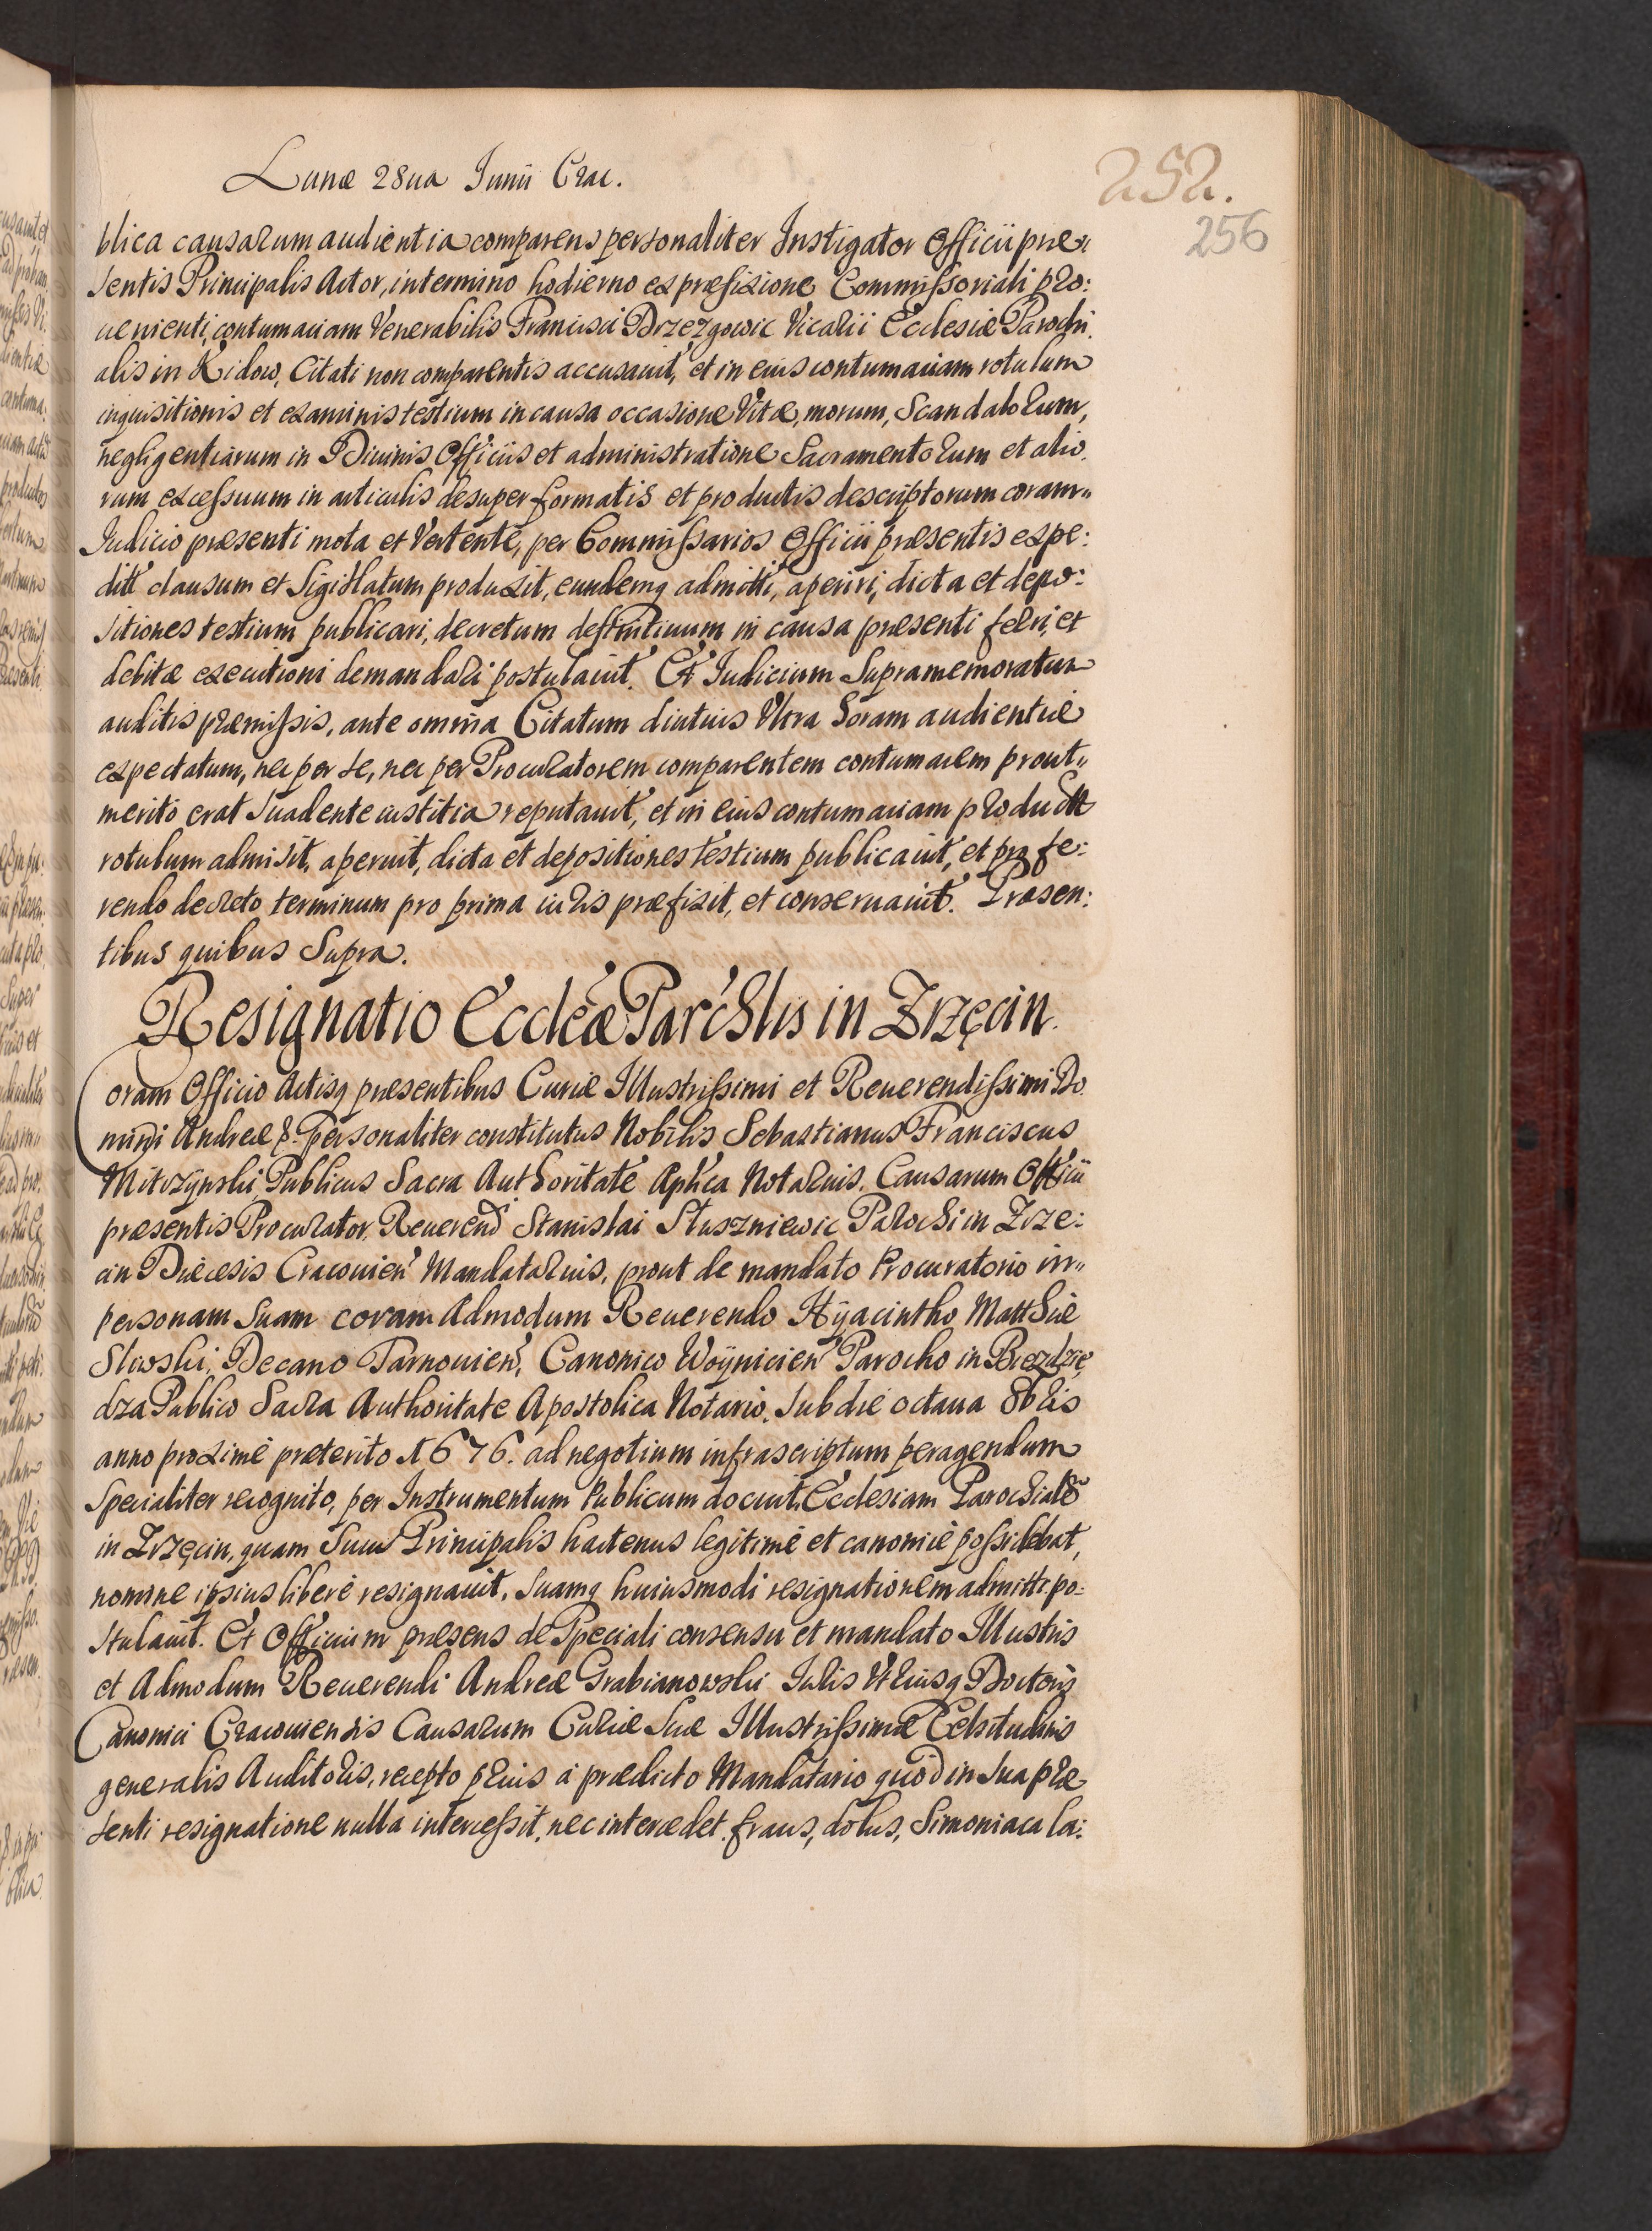 Lunæ 28ua Iunii Crac.
252.
256
blica causarum audientia comparens personaliter Instigator Officii præ„
sentis Principalis Actor, in termino hodierno ex præfixione Commissoriali pro:
uenienti, contumaciam Venerabilis Francisci Brzezgowic Vicarii Ecclesiæ Parochi
alis in Kidow, Citati non comparentis accusauit, et in eius contumaciam rotulum
inquisitionis et examinis testium in causa occasione Vitæ, morum, Scandalorum,
negligentiarum in Diuinis Officiis et administratione Sacramentorum et alio.
rum excessuum in articulis desuper formatis et productis descriptorum coram„
Iudicio præsenti mota et Vertente, per Commissarios Officii præsentis expe:
ditt clausum et Sigillatum produxit, eundemq admitti, aperiri, dicta et depo:
sitiones testium publicari, decretum definitiuum in causa præsenti ferri, et
debitæ executioni demandari postulauit. Et Iudicium Supramemoratum
auditis præmissis, ante omnia Citatum diutius Vltra horam audientiæ
expectatum, nec per se, nec per Procuratorem comparentem contumacem prout„
merito erat Suadente iustitia reputauit, et in eius contumaciam productt
rotulum admisit, aperuit, dicta et depositiones testium publicauit, et pro fe:
rendo decreto terminum pro prima iuris præfixit, et conseruauit. Præsen:
tibus quibus Supra.
Resignatio Eccleæ Parchlis in Zrzęcin.
Coram Officio Actisq præsentibus Curiæ Illustrissimi et Reuerendissimi Do.
mini Andreæ &. Personaliter constitutus Nobilis Sebastianus Franciscus
Mitczynski Publicus Sacra Authoritate Aplica Notarius, Causarum Officii
præsentis Procurator, Reuerend Stanislai Stuszniewic Parochi in Zrze:
cin Diœcesis Cracouien Mandatarius, prout de mandato Procuratorio in„
personam Suam coram Admodum Reuerendo Hyacintho Matthiæ
Sliwski, Decano Tarnouien, Canonico Woynicien Parocho in Biezdzie
dza Publico Sacra Authoritate Apostolica Notario, Sub die octaua 8bris
anno proximè præterito 1676. ad negotium infrascriptum peragendum
Specialiter recognito, per Instrumentum Publicum docuit, Ecclesiam Parochiale
in Zrzęcin, quam Suus Principalis hactenus legitimè et canonicè possidebat,
nomine ipsius liberè resignauit, Suamq huiusmodi resignationem admitti po:
stulauit. Et Officium præsens de Speciali consensu et mandato Illustris
et Admodum Reuerendi Andreæ Grabianowski Iuris Vtriusq Doctoris
Canonici Cracouiensis Causarum Curiæ Suæ Illustrissimæ Celsitudinis
generalis Auditoris, recepto prius à prædicto Mandatario quod in Sua præ
senti resignatione nulla intercessit, nec intercedet fraus, dolus, Simoniaca la: